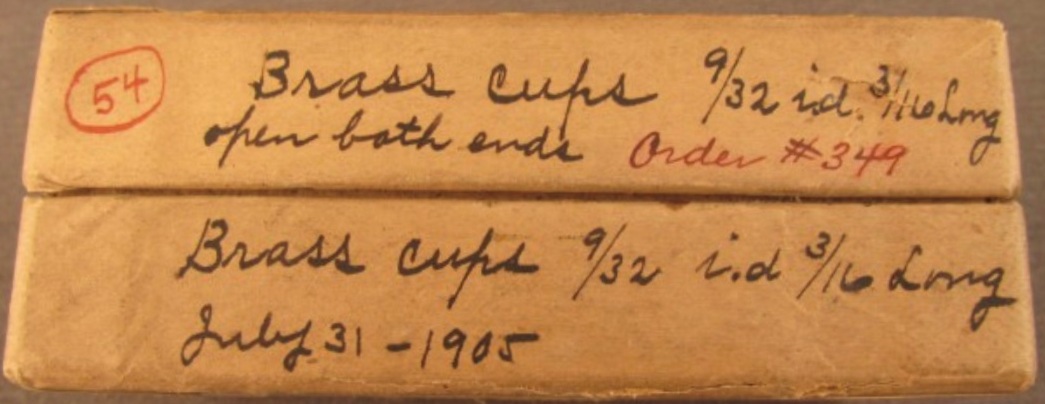 54
Brass cups 9/32 i.d. 3/16 Long
open both ends Order #349
Brass cups 9/32 i.d 3/16 Long
July 31 - 1905